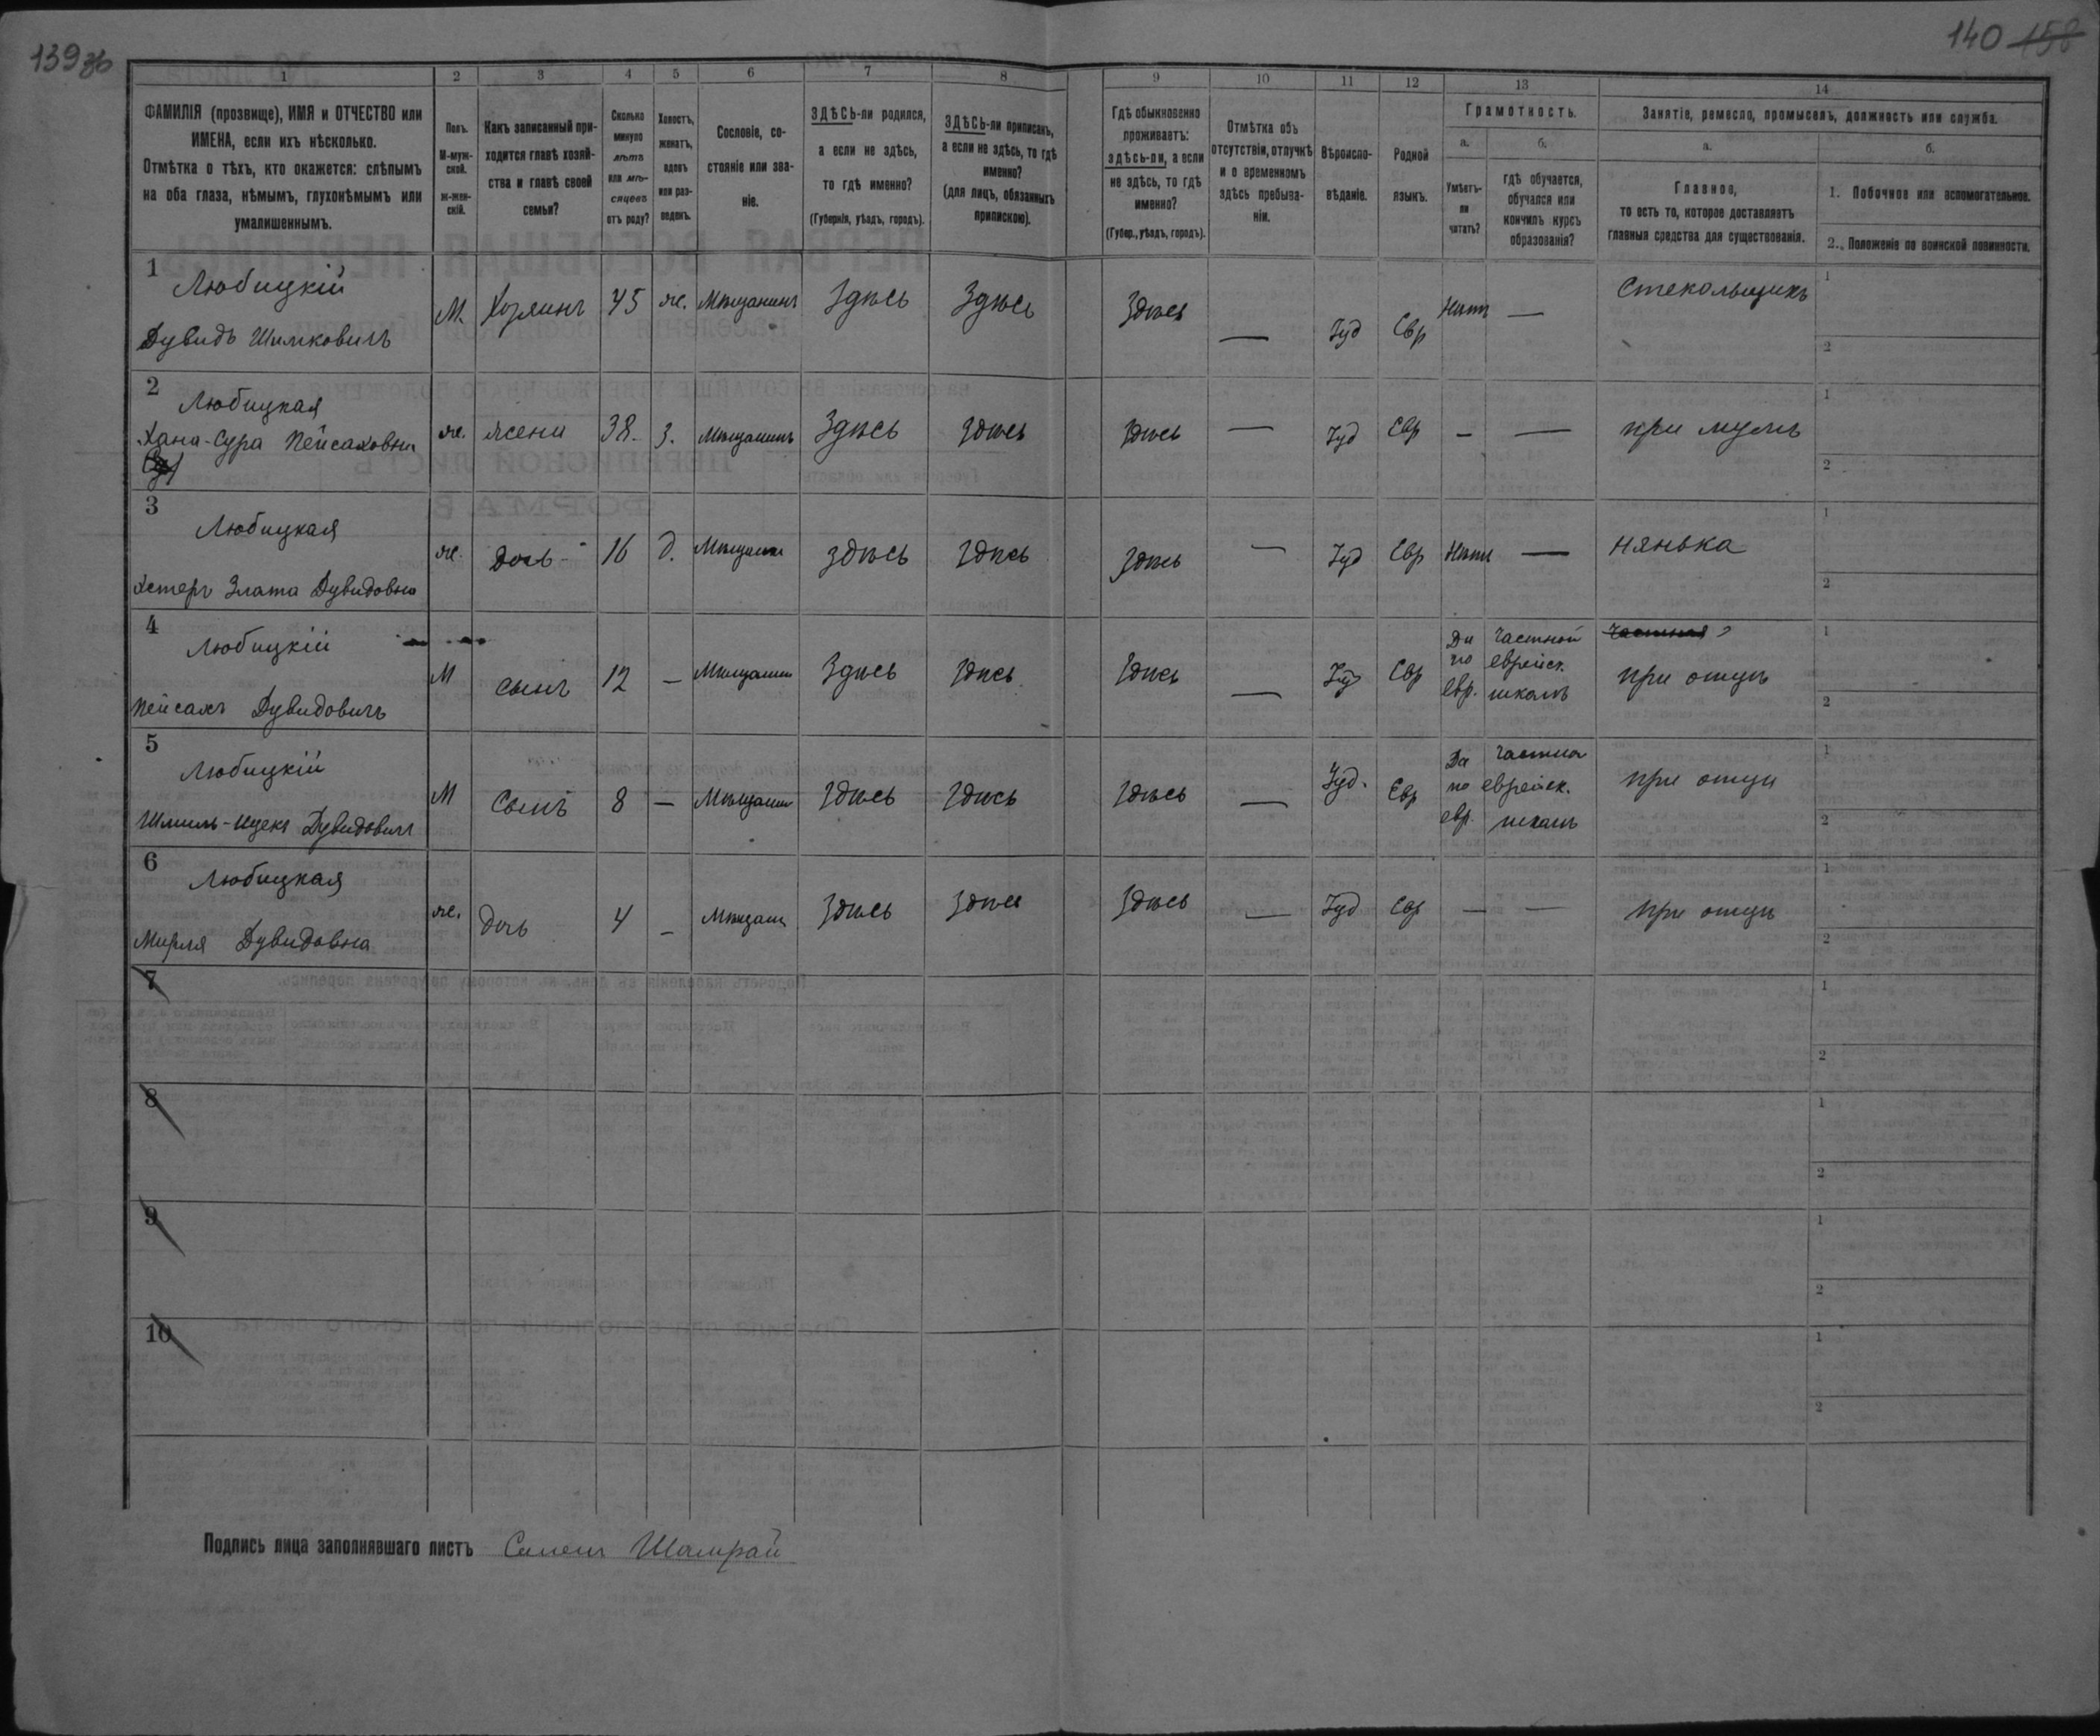 139об
140 158
1
2
3
4
5
6
7
8
9
10
11
12
13
14
ФАМИЛІЯ (прозвище), ИМЯ и ОТЧЕСТВО или
ИМЕНА, если ихъ нѣсколько.
Отмѣтка о тѣхъ, кто окажется: слѣпымъ
на оба глаза, нѣмымъ, глухонѣмымъ или
умалишеннымъ.
Полъ.
М-муж-
ской.
ж-жен-
скій.
Какъ записанный при-
ходится главѣ хозяй-
ства и главѣ своей
семьи?
Сколько
минуло
лѣтъ
или мѣ-
сяцевъ
отъ роду?
Холостъ,
женатъ,
вдовъ
или раз-
веденъ.
Сословіе, со-
стояніе или зва-
ніе.
ЗДѢСЬ-ли родился,
а если не здѣсь,
то гдѣ именно?
(Губернія, уѣздъ, городъ).
ЗДѢСЬ-ли приписанъ,
а если не здѣсь, то гдѣ
именно?
(для лицъ, обязанныхъ
припискою).
Гдѣ обыкновенно
проживаетъ:
здѣсь-ли, а если
не здѣсь, то гдѣ
именно?
(Губер., уѣздъ, городъ).
Отмѣтка объ
отсутствіи, отлучкѣ
и о временномъ
здѣсь пребыва-
ніи.
Вѣроиспо-
вѣданіе.
Родной
языкъ.
Грамотность.
а.
Умѣетъ-
ли
читать?
б.
гдѣ обучается,
обучался или
кончилъ курсъ
образованія?
Занятіе, ремесло, промыселъ, должность или служба.
а.
Главное,
то есть то, которое доставляетъ
главныя средства для существованія.
б.
1. Побочное или вспомогательное.
2. Положеніе по воинской повинности.
1
Любицкій
Дувидъ Шимковичъ
М. Хозяинъ 45 ж. Мѣщанинъ Здѣсь Здѣсь Здѣсь — Іуд Евр Нѣтъ — Стекольщикъ
1
2
2
Любицкая
Хана-Сура Пейсаховна
ж. жена 38. З. Мѣщанинъ Здѣсь здѣсь здѣсь — Іуд Евр — — при мужѣ
1
2
3
Любицкая
Хстеръ Злата Дувидовна
ж. дочь 16 д. Мѣщанин здѣсь здѣсь здѣсь — Іуд Евр Нѣтъ — нянька
1
2
4
Любицкій
Пейсахъ Дувидовичъ
М сынъ 12 — Мѣщанин Здѣсь здѣсь здѣсь — Іуд Евр
Да
по
евр.
частной
еврейск.
школѣ
частная
при отцѣ
1
2
5
Любицкій
Шмиль-Ицекъ Дувидовичъ
М Сынъ 8 — Мѣщанин здѣсь здѣсь здѣсь — Іуд. Евр
Да
по
евр.
частна
еврейск.
школѣ
при отцѣ
1
2
6
Любицкая
Мирля Дувидовна
ж. дочь 4 — Мѣщан здѣсь здѣсь здѣсь — Іуд Евр — — при отцѣ
1
2
7
1
2
8
1
2
9
1
2
10
1
2
Подпись лица заполнявшаго листъ Семенъ Шамрай